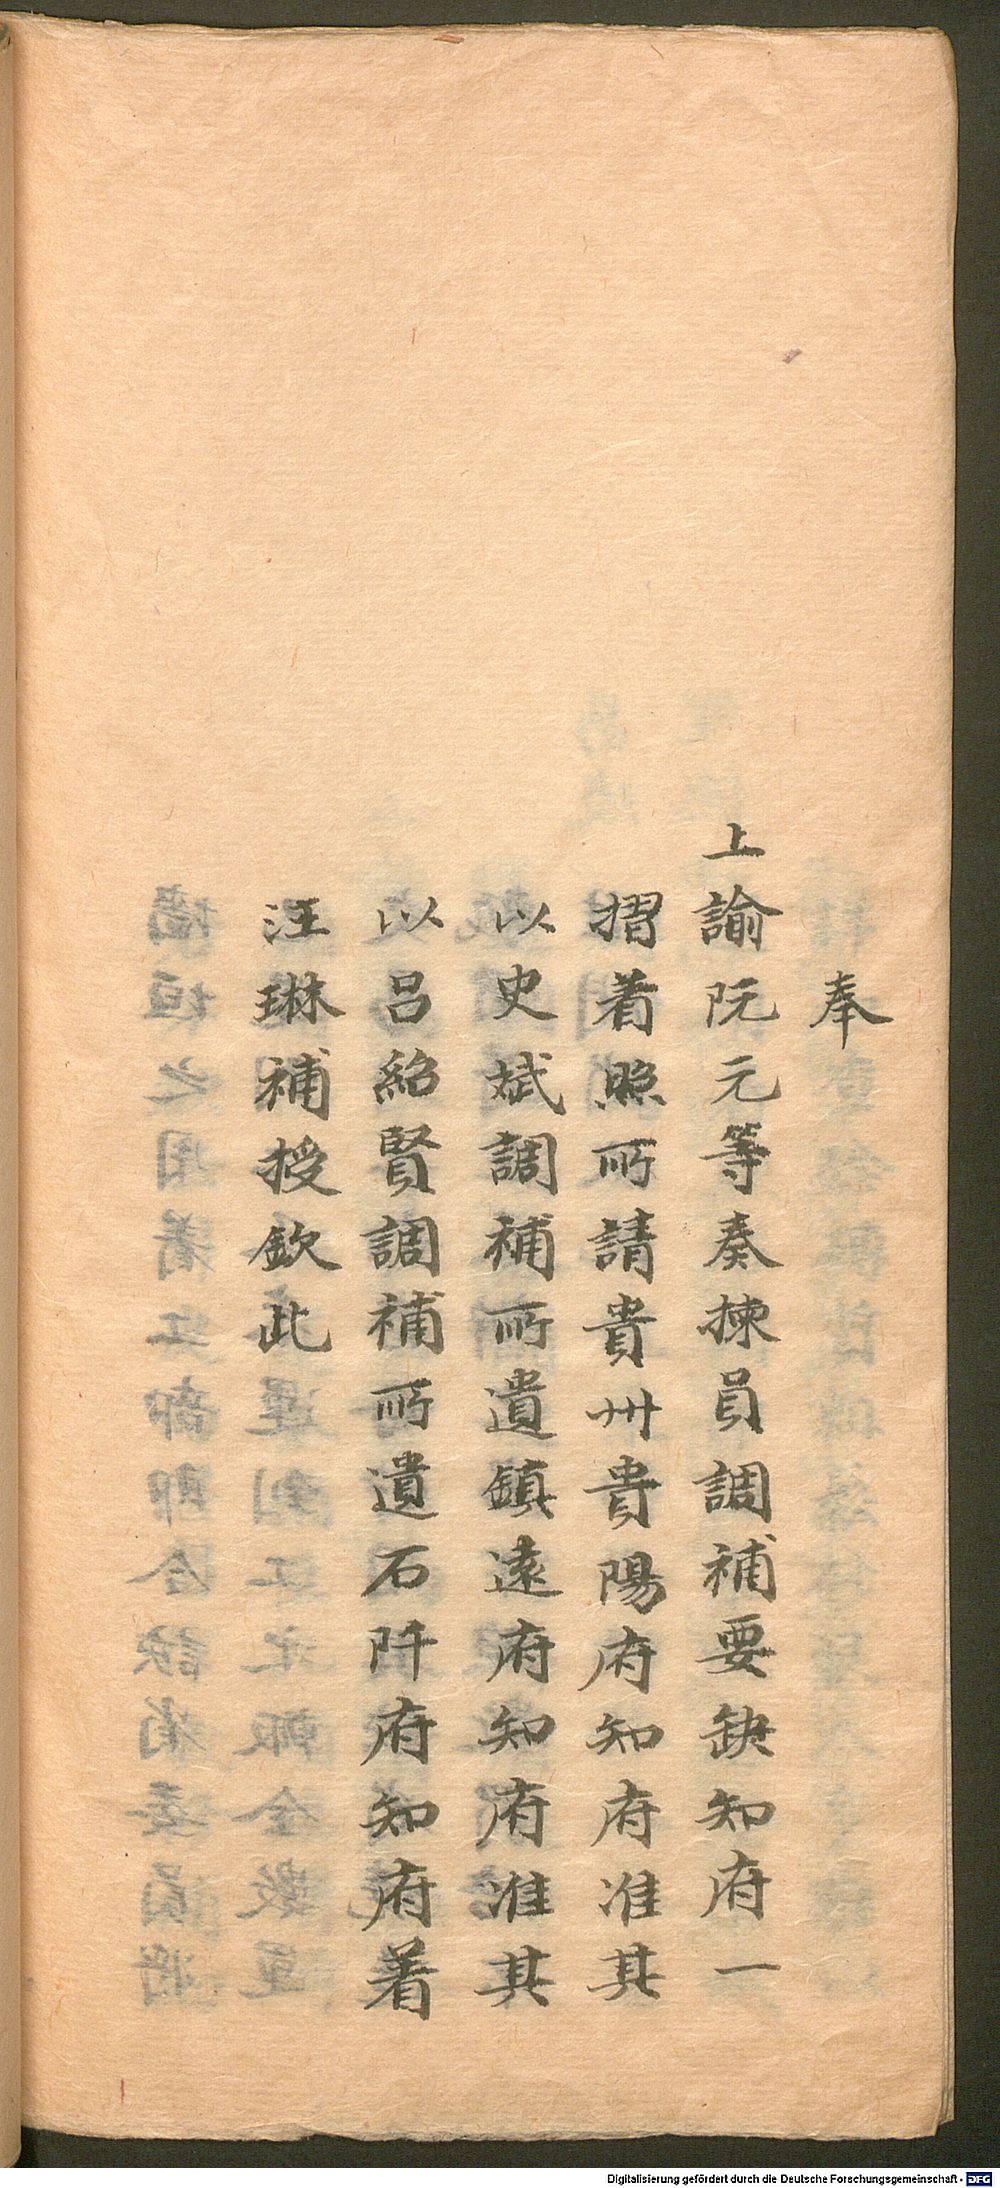 奉
上諭阮元等奏揀員調補要缺知府一
摺着照所請貴州貴陽府知府准其
以史斌調補所遺鎮遠府知府准其
以呂紹賢調補所遺石阡府知府着
汪琳補授欽此
Digitalisierung gefördert durch die Deutsche Forschungsgemeinschaft - DFG